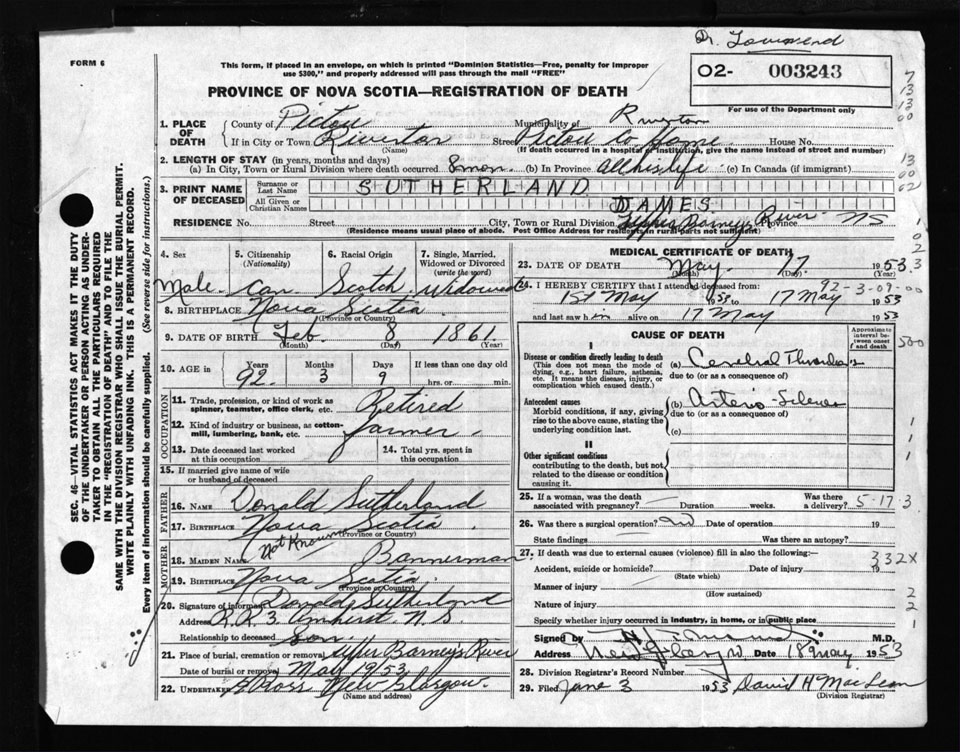 Dr. Townsend
FORM 6
This form, if placed in an envelope, on which is printed "Dominion Statistics—Free, penalty for improper
use $300," and properly addressed will pass through the mail "FREE"
02- 003243
For use of the Department only
PROVINCE OF NOVA SCOTIA—REGISTRATION OF DEATH
1. PLACE OF DEATH
County of Pictou Municipality of Riverton
If in City or Town Riverton Street Pictou Co Home House No.
(Name) (If death occurred in a hospital or institution, give the name instead of street and number)
2. LENGTH OF STAY (in years, months and days)
(a) In City, Town or Rural Division where death occurred 8 mon. (b) In Province All his life (c) In Canada (if immigrant)
3. PRINT NAME OF DECEASED
Surname or Last Name SUTHERLAND
All Given or Christian Names JAMES
RESIDENCE No. Street City, Town or Rural Division Upper Barneys River Province NS
(Residence means usual place of abode. Post Office Address for residents in rural parts not sufficient)
4. Sex Male
5. Citizenship (Nationality) Can
6. Racial Origin Scotch
7. Single, Married, Widowed or Divorced (write the word) Widowed
8. BIRTHPLACE Nova Scotia
(Province or Country)
9. DATE OF BIRTH Feb. 8 1861
(Month) (Day) (Year)
10. AGE in Years 92 Months 3 Days 9 If less than one day
hrs. or min.
OCCUPATION
11. Trade, profession, or kind of work as spinner, teamster, office clerk, etc. Retired
12. Kind of industry or business, as cotton-mill, lumbering, bank, etc. farmer
13. Date deceased last worked at this occupation
14. Total yrs. spent in this occupation
15. If married give name of wife or husband of deceased
FATHER
16. NAME Donald Sutherland
17. BIRTHPLACE Nova Scotia
(Province or Country)
MOTHER
18. MAIDEN NAME Not Known Bannerman
19. BIRTHPLACE Nova Scotia
(Province or Country)
20. Signature of informant Donald Sutherland
Address R.R. 3. Amherst N.S.
Relationship to deceased Son
21. Place of burial, cremation or removal Upper Barneys River
Date of burial or removal May 1953
22. Undertaker Ross New Glasgow.
(Name and address)
MEDICAL CERTIFICATE OF DEATH
23. DATE OF DEATH May 17 1953
(Month) (Day) (Year)
92-3-09-00
24. I HEREBY CERTIFY that I attended deceased from:
1st May 1953 to 17 May 1953
and last saw him alive on 17 May 1953
CAUSE OF DEATH
Approximate interval between onset and death
I
Disease or condition directly leading to death
(This does not mean the mode of dying, e.g., heart failure, asthenia, etc. It means the disease, injury, or complication which caused death.)
(a) Cerebral Thrombosis
due to (or as a consequence of)
Antecedent causes
Morbid conditions, if any, giving rise to the above cause, stating the underlying condition last.
(b) Arterio
due to (or as a consequence of)
(c)
II
Other significant conditions
contributing to the death, but not related to the disease or condition causing it.
25. If a woman, was the death associated with pregnancy? Duration weeks. Was there a delivery?
5-17-3
26. Was there a surgical operation? no Date of operation 19
State findings Was there an autopsy?
27. If death was due to external causes (violence) fill in also the following:—
332X
Accident, suicide or homicide? Date of injury 19
(State which)
Manner of injury
(How sustained)
Nature of injury
Specify whether injury occurred in industry, in home, or in public place
Signed by M.D.
Address New Glasgow Date 18 May 1953
28. Division Registrar's Record Number
29. Filed June 3 1953 David H MacLean
(Division Registrar)
SEC. 46—VITAL STATISTICS ACT MAKES IT THE DUTY
OF THE UNDERTAKER OR PERSON ACTING AS UNDER-
TAKER TO OBTAIN ALL THE PARTICULARS REQUIRED
IN THE "REGISTRATION OF DEATH" AND TO FILE THE
SAME WITH THE DIVISION REGISTRAR WHO SHALL ISSUE THE BURIAL PERMIT.
WRITE PLAINLY WITH UNFADING INK. THIS IS A PERMANENT RECORD.
Every item of information should be carefully supplied. (See reverse side for instructions.)
7
13
13
00
13
00
62
1
0
2
3
500
1
1
1
2
2
1